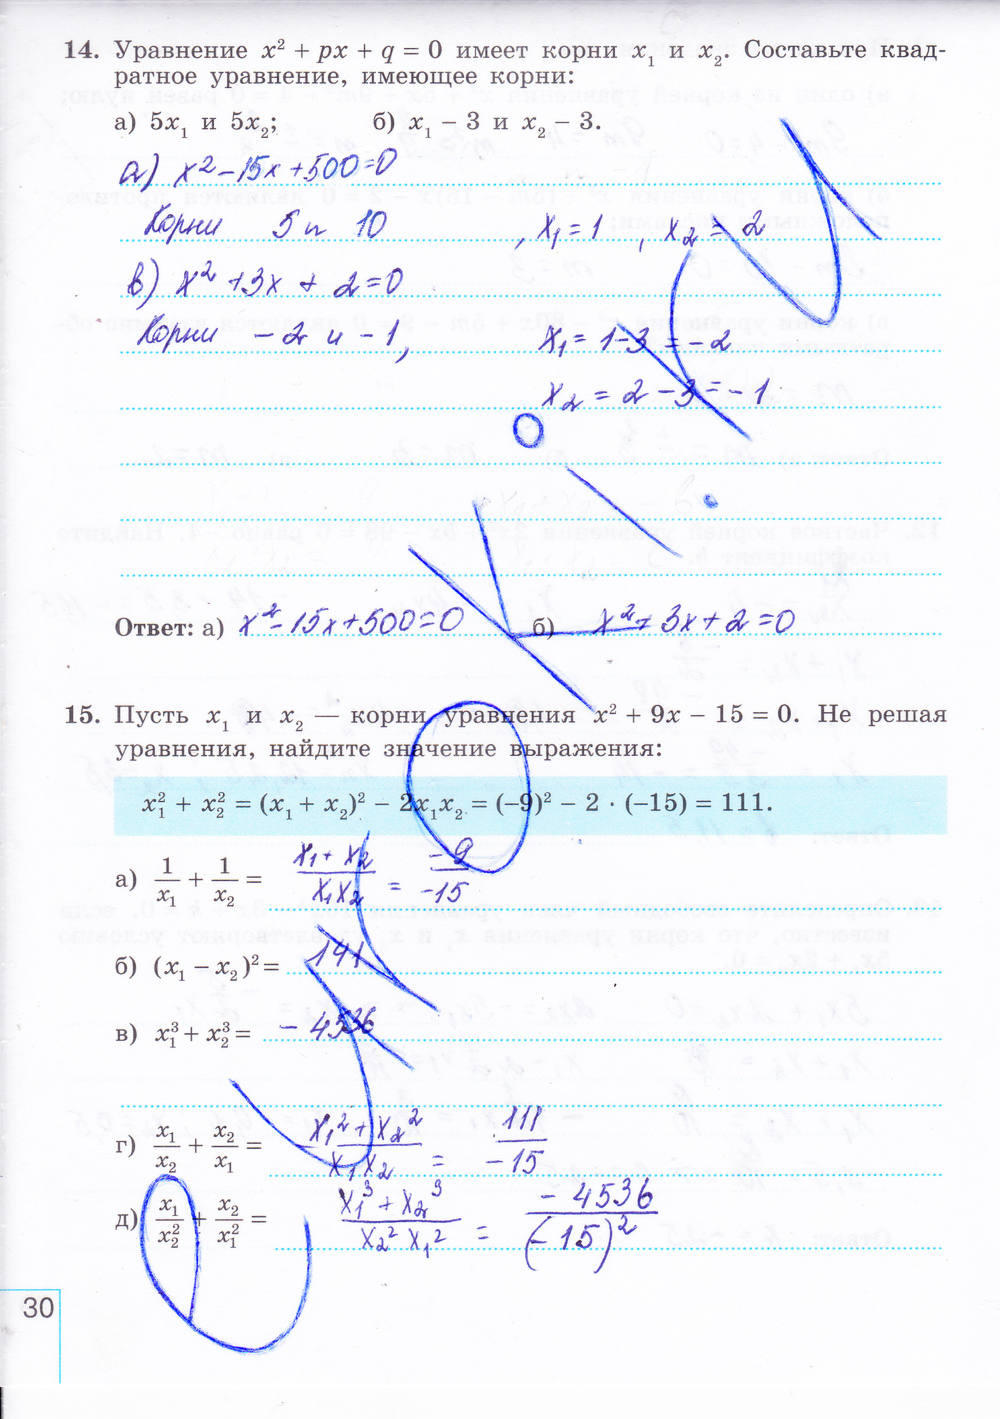 14. Уравнение x² + px + q = 0 имеет корни x₁ и x₂. Составьте квад-
ратное уравнение, имеющее корни:
а) 5x₁ и 5x₂; б) x₁ − 3 и x₂ − 3.
а) x² − 15x + 500 = 0
Корни 5 и 10 , x₁ = 1 , x₂ = 2
в) x² + 3x + 2 = 0
Корни − 2 и − 1, x₁ = 1 − 3 = − 2
x₂ = 2 − 3 = − 1
Ответ: а) x² − 15x + 500 = 0 б) x² + 3x + 2 = 0
15. Пусть x₁ и x₂ — корни уравнения x² + 9x − 15 = 0. Не решая
уравнения, найдите значение выражения:
x₁² + x₂² = (x₁ + x₂)² − 2x₁x₂ = (−9)² − 2 · (−15) = 111.
а) 1/x₁ + 1/x₂ = (x₁ + x₂)/(x₁x₂) = −9/−15
б) (x₁ − x₂)² = 141
в) x₁³ + x₂³ = − 4536
г) x₁/x₂ + x₂/x₁ = (x₁² + x₂²)/(x₁x₂) = 111/−15
д) x₁/x₂² + x₂/x₁² = (x₁³ + x₂³)/(x₂² x₁²) = −4536/(−15)²
30